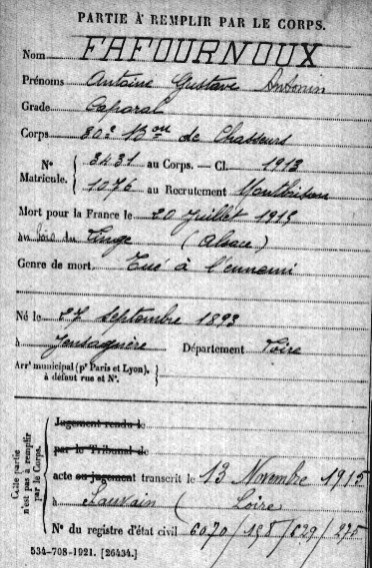 PARTIE À REMPLIR PAR LE CORPS.
Nom FAFOURNOUX
Prénoms Antoine Gustave Antonin
Grade Caporal
Corps 30e Bon de Chasseurs
N° Matricule. 3431 au Corps. — Cl. 1913
1076 au Recrutement Montbrison
Mort pour la France le 20 Juillet 1915
au bois du Linge (Alsace)
Genre de mort Tué à l'ennemi
Né le 27 Septembre 1893
à Département Loire
Arrt municipal (pr Paris et Lyon),
à défaut rue et N°.
Cette partie
n'est pas à remplir
par le Corps.
Jugement rendu le
par le Tribunal de
acte ou jugement transcrit le 13 Novembre 1915
à Sauvain (Loire
N° du registre d'état civil 6070/158/629/275
534-708-1921. [26434.]